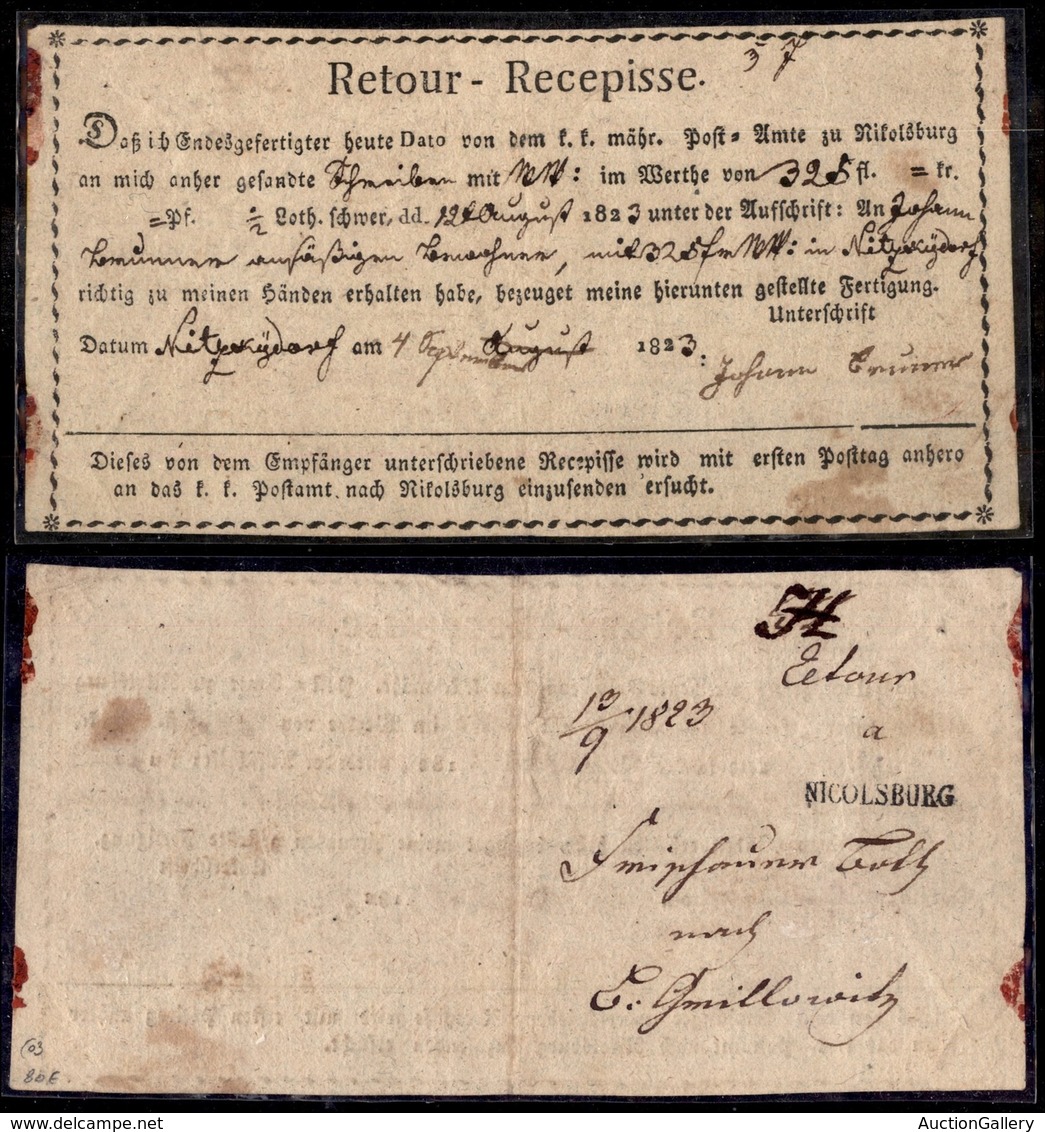 5 7
Retour - Recepisse.
Daß ich Endesgefertigter heute Dato von dem k. k. mähr. Post = Amte zu Nikolsburg
an mich anher gesandte Schreiben mit WW: im Werthe von 325 fl. = kr.
= Pf. Loth. schwer, dd. 12t August 1823 unter der Aufschrift: An Johann
Brunner ansäßigen Bewohner, mit 325 f WW: in Nitzkydorf
richtig zu meinen Händen erhalten habe, bezeuget meine hierunten gestellte Fertigung.
Unterschrift
Datum Nitzkydorf am 4 September August 1823.
Johann Brunner
Dieses von dem Empfänger unterschriebene Recepisse wird mit ersten Posttag anhero
an das k. k. Postamt nach Nikolsburg einzusenden ersucht.
Retour
13/9 1823
a
NICOLSBURG
Frischauer
nach
80€
AuctionGallery